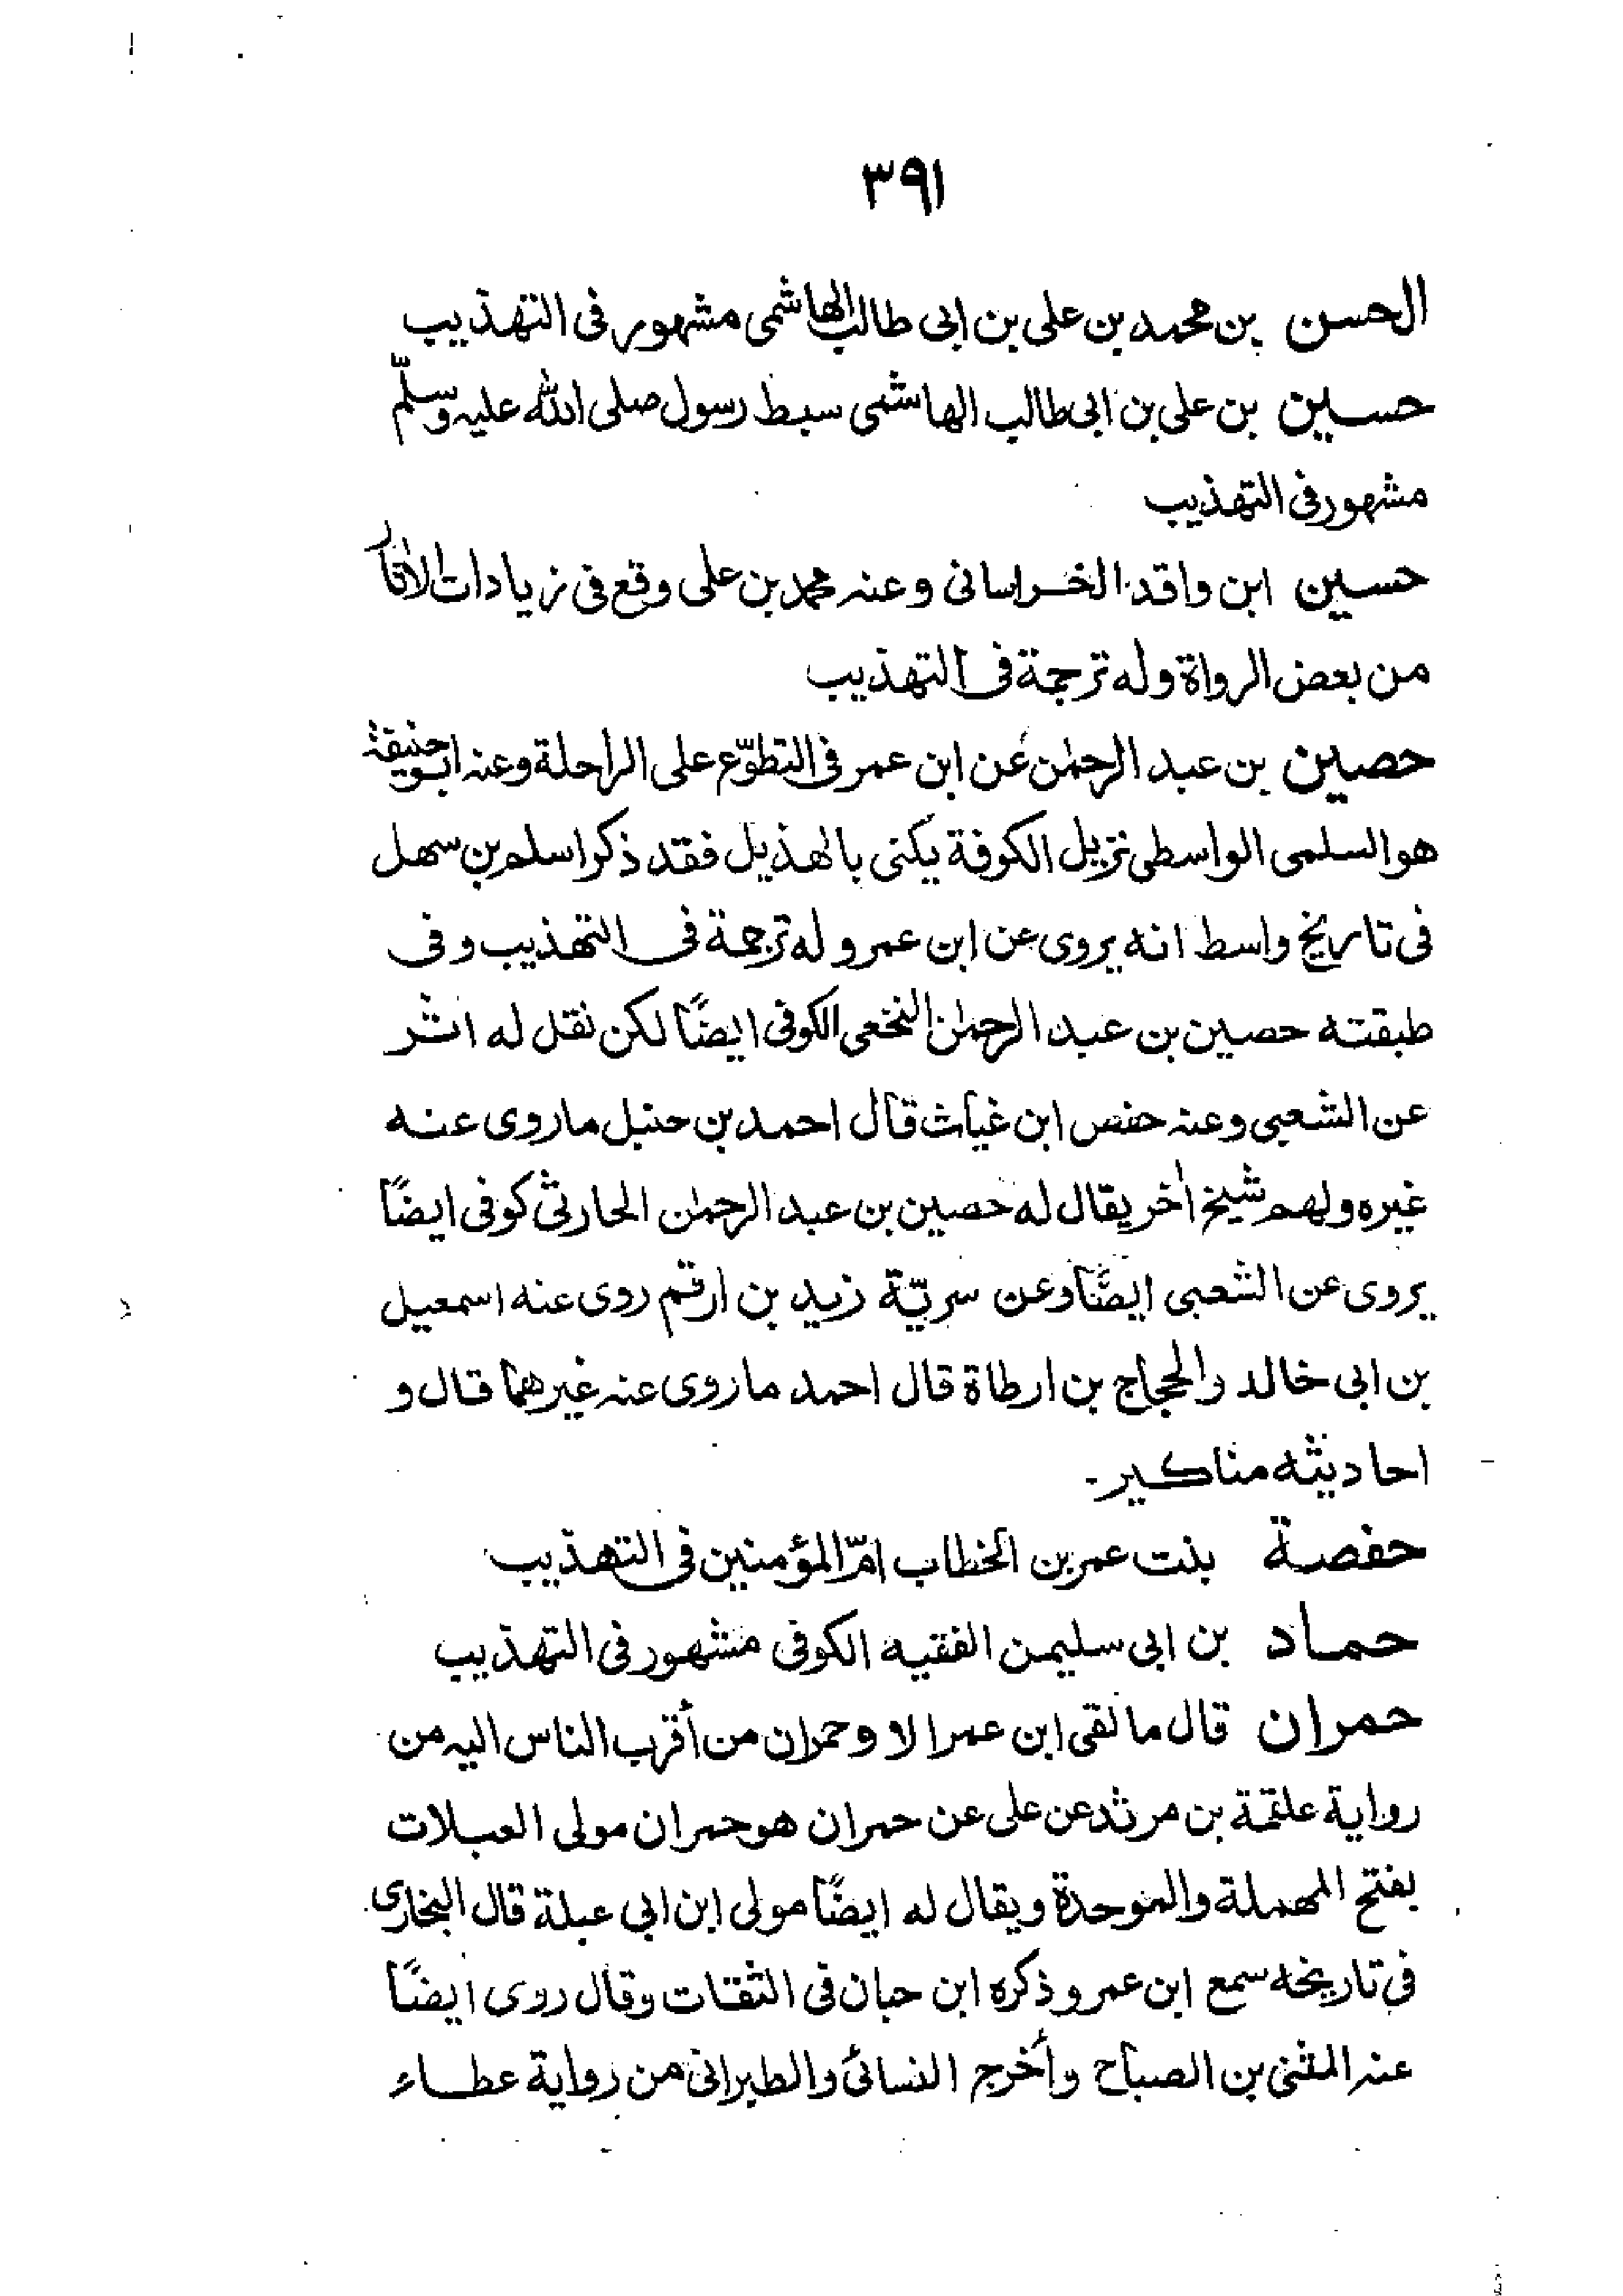 ٣٩١
الحسن بن محمد بن علی بن ابی طالب الهاشمی مشهور فی التهذیب
حسین بن علی بن ابی طالب الهاشمی سبط رسول صلی الله علیه وسلّم
مشهور فی التهذیب
حسین ابن واقد الخراسانی وعنه محمد بن علی وقع فی زیادات الاٰثار
من بعض الرواة وله ترجمة فی التهذیب
حصین بن عبد الرحمٰن عن ابن عمر فی التطوّع علی الراحلة وعنه ابو حنیفة
هو السلمی الواسطی نزیل الکوفة یکنی بالهذیل فقد ذکر اسلم بن سهل
فی تاریخ واسط انه یروی عن ابن عمر وله ترجمة فی التهذیب وفی
طبقته حصین بن عبد الرحمٰن النخعی الکوفی ایضًا لکن نقل له اثر
عن الشعبی وعنه حفص ابن غیاث قال احمد بن حنبل ما روی عنه
غیره ولهم شیخ اٰخر یقال له حصین بن عبد الرحمٰن الحارثی کوفی ایضًا
یروی عن الشعبی ایضًا وعن سریّة زید بن ارقم روی عنه اسمعیل
بن ابی خالد والحجاج بن ارطاة قال احمد ما روی عنه غیرهما قال و
احادیثه مناکیر۔
حفصة بنت عمر بن الخطاب امّ المؤمنین فی التهذیب
حماد بن ابی سلیمن الفقیه الکوفی مشهور فی التهذیب
حمران قال ما لقی ابن عمر الا وحمران من أقرب الناس الیه من
روایة علقمة بن مرثد عن علی عن حمران هو حمران مولی العبلات
بفتح المهملة والموحدة ویقال له ایضًا مولی ابن ابی عبلة قال البخاری
فی تاریخه سمع ابن عمر وذکره ابن حبان فی الثقات وقال روی ایضًا
عنه المثنی بن الصباح وأخرج النسائی والطبرانی من روایة عطاء